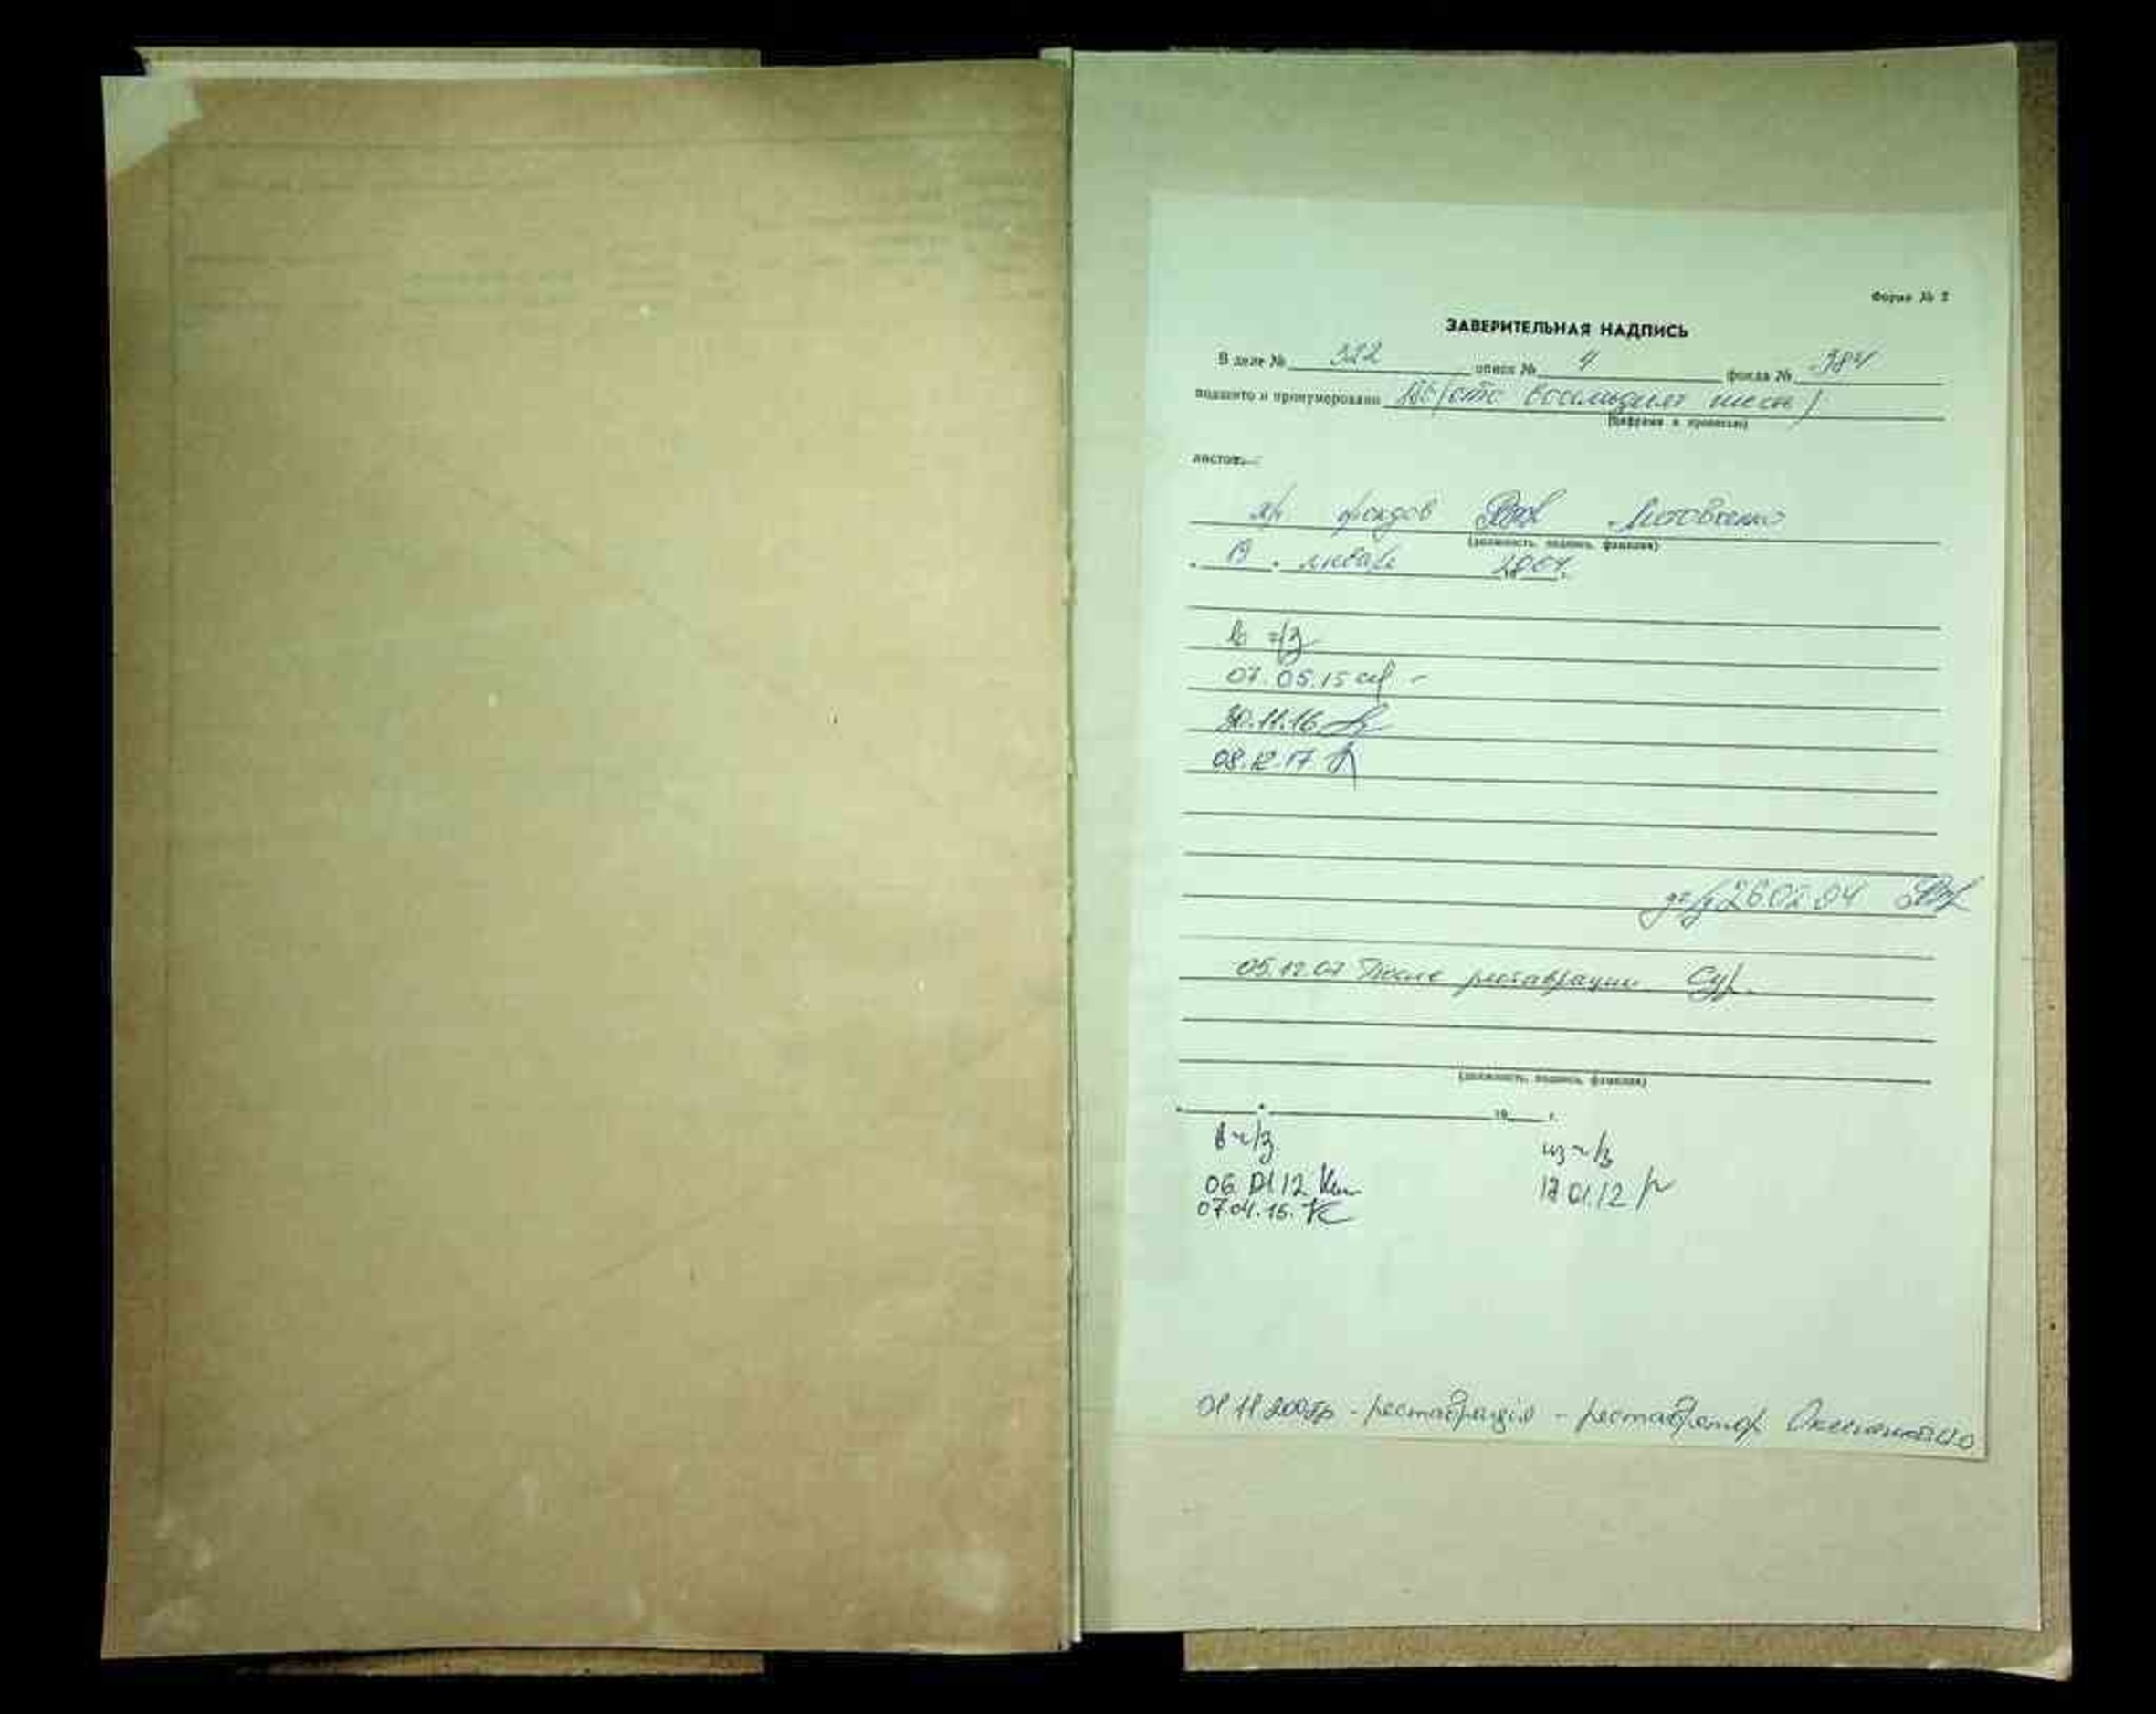 Форма № 2
ЗАВЕРИТЕЛЬНАЯ НАДПИСЬ
В деле № 322 опись № 4 фонда № 384
подшито и пронумеровано 186 (сто восемьдесят шесть)
(цифрами и прописью)
листов.
хр. фондов
(должность, подпись, фамилия)
января 2004.
07.05.15
30.11.16
08.12.17
26.02.04
05.12.07 После реставрации
(должность, подпись, фамилия)
19 г.
в ч/з из ч/з
06.01.12 17.01.12
07.04.16.
01.11.2007р - реставрація - реставратор